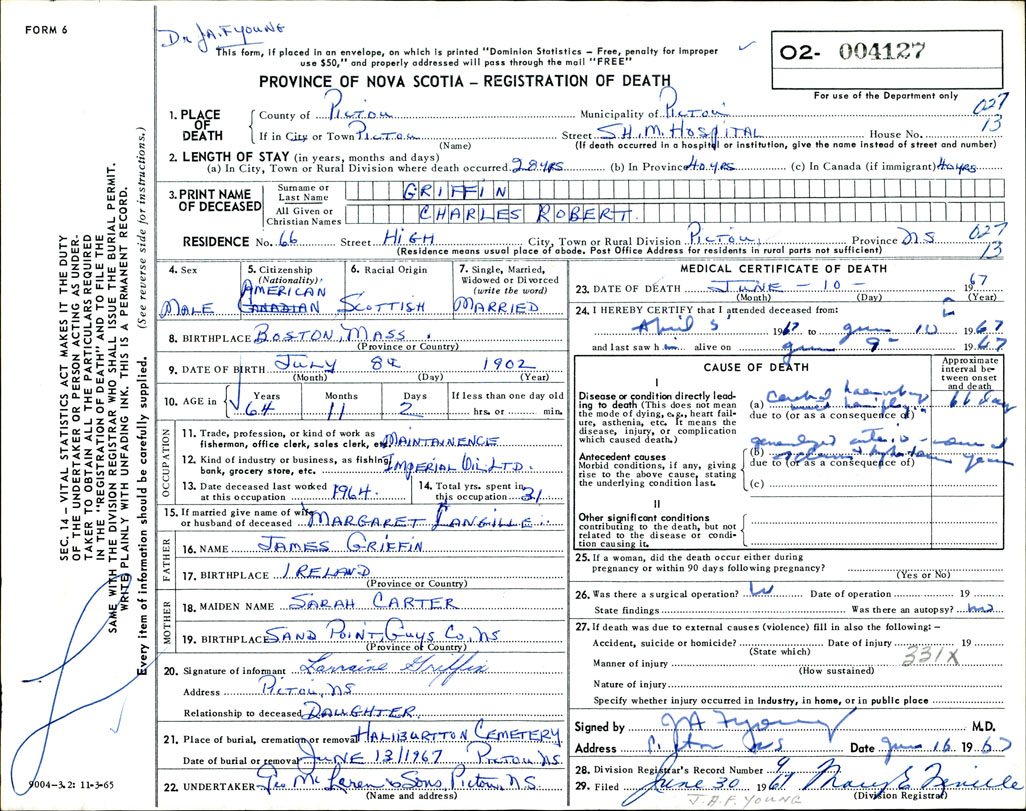 FORM 6
Dr J.A.F. YOUNG
This form, if placed in an envelope, on which is printed "Dominion Statistics – Free, penalty for improper
use $50," and properly addressed will pass through the mail "FREE"
02- 004127
For use of the Department only
PROVINCE OF NOVA SCOTIA – REGISTRATION OF DEATH
1. PLACE OF DEATH
County of PICTOU Municipality of PICTOU 027
If in City or Town PICTOU Street S.H.M. HOSPITAL House No. 13
(Name) (If death occurred in a hospital or institution, give the name instead of street and number)
2. LENGTH OF STAY (in years, months and days)
(a) In City, Town or Rural Division where death occurred 28 YRS (b) In Province 40 YRS (c) In Canada (if immigrant) 40 YRS
3. PRINT NAME OF DECEASED
Surname or Last Name GRIFFIN
All Given or Christian Names CHARLES ROBERT
RESIDENCE No. 66 Street HIGH City, Town or Rural Division PICTOU Province N.S 027
(Residence means usual place of abode. Post Office Address for residents in rural parts not sufficient) 13
4. Sex MALE
5. Citizenship (Nationality) AMERICAN CANADIAN
6. Racial Origin SCOTTISH
7. Single, Married, Widowed or Divorced (write the word) MARRIED
8. BIRTHPLACE BOSTON, MASS
(Province or Country)
9. DATE OF BIRTH JULY 8th 1902
(Month) (Day) (Year)
10. AGE in Years 64 Months 11 Days 2 If less than one day old hrs. or min.
OCCUPATION
11. Trade, profession, or kind of work as fisherman, office clerk, sales clerk, etc. MAINTAINENCE
12. Kind of industry or business, as fishing, bank, grocery store, etc. IMPERIAL OIL LTD.
13. Date deceased last worked at this occupation 1964
14. Total yrs. spent in this occupation 31
15. If married give name of wife or husband of deceased MARGARET LANGILLE
FATHER
16. NAME JAMES GRIFFIN
17. BIRTHPLACE IRELAND
(Province or Country)
MOTHER
18. MAIDEN NAME SARAH CARTER
19. BIRTHPLACE SAND POINT, GUYS CO, NS
(Province or Country)
20. Signature of informant Lorraine Griffin
Address PICTOU, NS
Relationship to deceased DAUGHTER
21. Place of burial, cremation or removal HALIBURTON CEMETERY
Date of burial or removal JUNE 13/1967 PICTOU NS
22. UNDERTAKER Geo McLaren & Sons, Pictou, N.S.
(Name and address)
MEDICAL CERTIFICATE OF DEATH
23. DATE OF DEATH JUNE – 10 – 1967
(Month) (Day) (Year)
24. I HEREBY CERTIFY that I attended deceased from:
April 5 1967 to June 10 1967
and last saw him alive on June 9 1967
CAUSE OF DEATH
Approximate interval between onset and death
I
Disease or condition directly leading to death (This does not mean the mode of dying, e.g., heart failure, asthenia, etc. It means the disease, injury, or complication which caused death.)
(a) Cerebral haemorrhage 66 days
due to (or as a consequence of)
Antecedent causes
Morbid conditions, if any, giving rise to the above cause, stating the underlying condition last.
(b) generalized arterio-
due to (or as a consequence of) years
(c)
II
Other significant conditions
contributing to the death, but not related to the disease or condition causing it.
25. If a woman, did the death occur either during pregnancy or within 90 days following pregnancy?
(Yes or No)
26. Was there a surgical operation? Date of operation 19
State findings Was there an autopsy?
27. If death was due to external causes (violence) fill in also the following: –
Accident, suicide or homicide? Date of injury 19
(State which) 331X
Manner of injury
(How sustained)
Nature of injury
Specify whether injury occurred in Industry, in home, or in public place
Signed by JAF Young M.D.
Address Pictou NS Date June 16 1967
28. Division Registrar's Record Number 9
29. Filed June 30 1967 Mary E.
(Division Registrar)
J.A.F. YOUNG
SEC. 14 – VITAL STATISTICS ACT MAKES IT THE DUTY
OF THE UNDERTAKER OR PERSON ACTING AS UNDERTAKER TO OBTAIN ALL THE PARTICULARS REQUIRED
IN THE "REGISTRATION OF DEATH" AND TO FILE THE
SAME WITH THE DIVISION REGISTRAR WHO SHALL ISSUE THE BURIAL PERMIT.
WRITE PLAINLY WITH UNFADING INK. THIS IS A PERMANENT RECORD.
Every item of information should be carefully supplied. (See reverse side for instructions.)
9004-3.2: 11-3-65